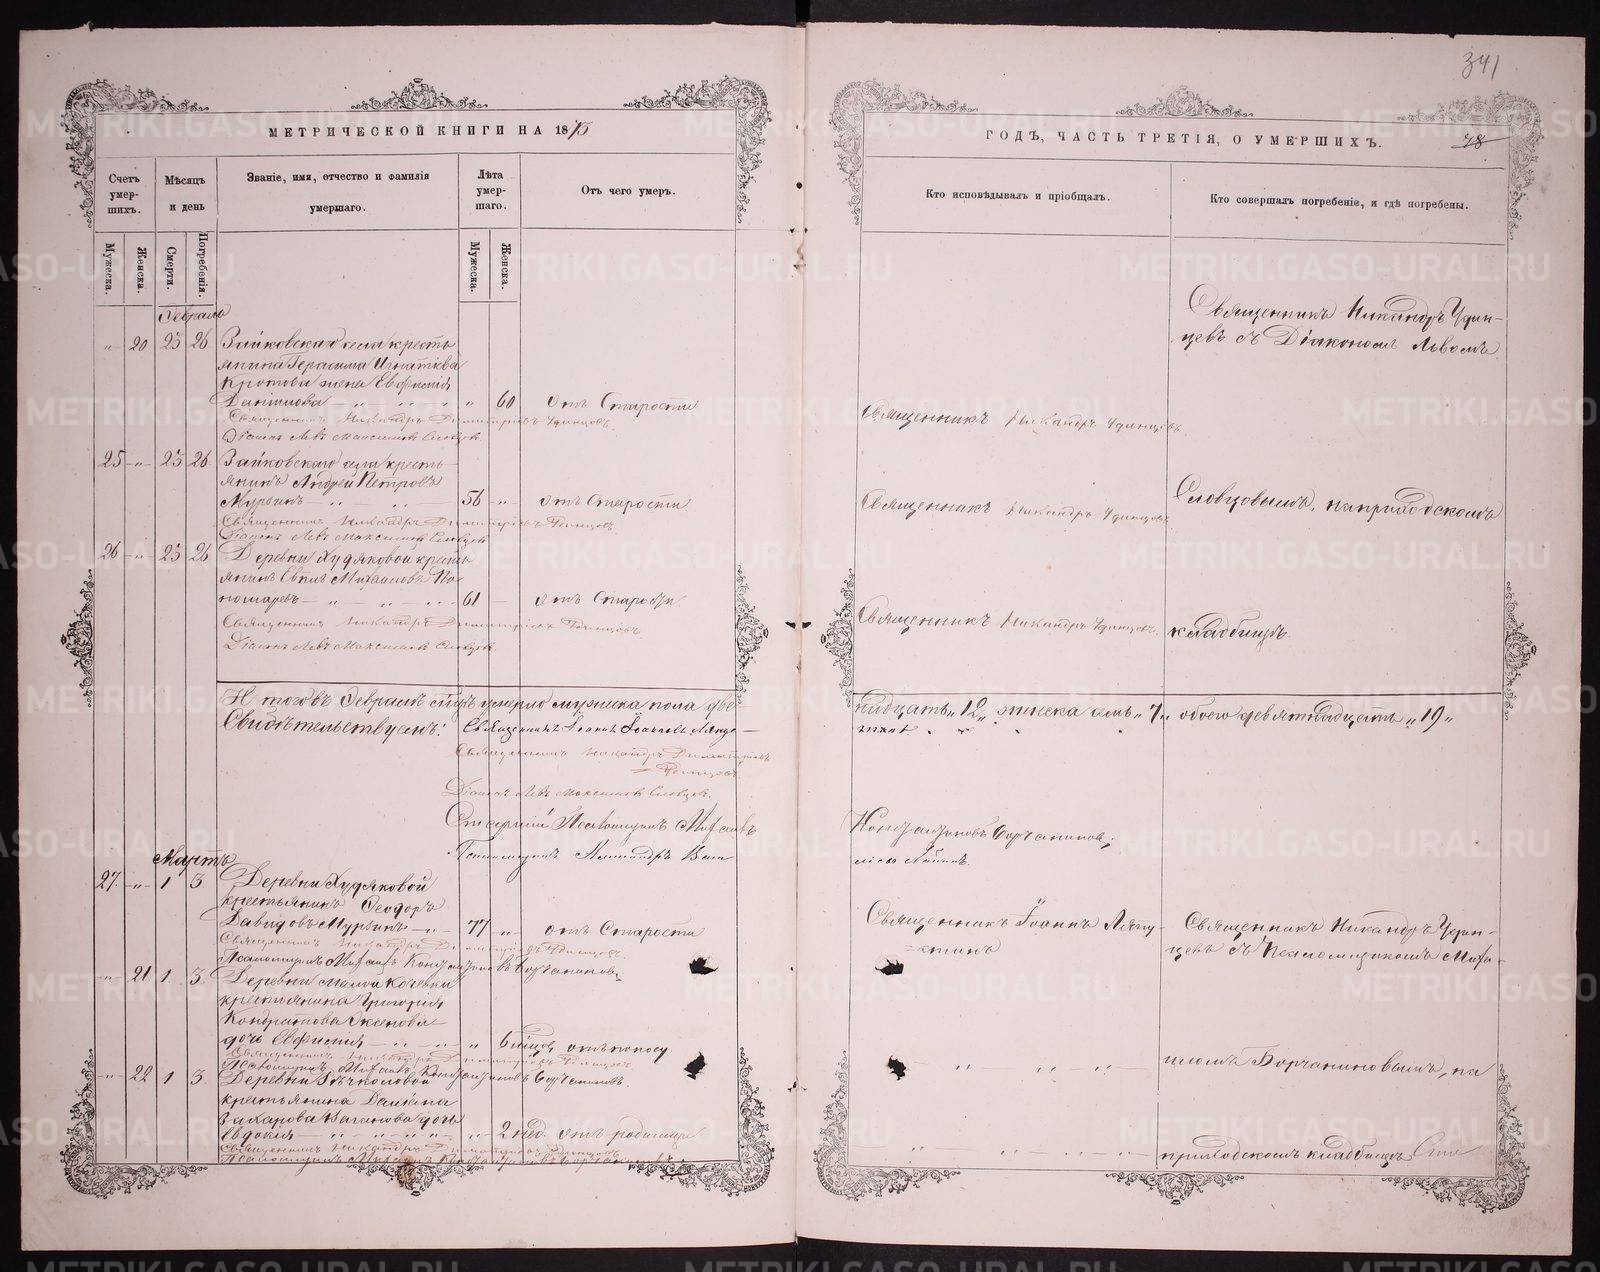 341
МЕТРИЧЕСКОЙ КНИГИ НА 1875
ГОДЪ, ЧАСТЬ ТРЕТІЯ, О УМЕРШИХЪ.
78
Счетъ умер-
шихъ.
Мѣсяцъ
и день
Званіе, имя, отчество и фамилія
умершаго.
Лѣта
умер-
шаго.
Отъ чего умеръ.
Кто исповѣдывалъ и пріобщалъ.
Кто совершалъ погребеніе, и гдѣ погребены.
Мужеска.
Женска.
Смерти.
Погребенія.
Мужеска.
Женска.
Февраль
" 20 23 26 Зайковскаго села кресть
янина Герасима Игнатіева
Кротова жена Евфимія
Даніилова " 60 отъ Старости
Священникъ Никандръ Димитріевъ Удинцовъ
Діаконъ Левъ Максимовъ Словцовъ
Священникъ Никандръ Удинцовъ
Священникъ Никандръ Удин-
цевъ съ Діакономъ Львомъ
25 " 23 26 Зайковскаго села кресть-
янинъ Андрей Петровъ
Мурзинъ 56 " отъ Старости
Священникъ Никандръ Димитріевъ Удинцовъ
Діаконъ Левъ Максимовъ Словцовъ
Священникъ Никандръ Удинцовъ
Словцовымъ, на приходскомъ
26 " 23 26 Деревни Худяковой кресть
янинъ Михаиловъ По
номаревъ 61 отъ Старости
Священникъ Никандръ Димитріевъ Удинцовъ
Діаконъ Левъ Максимовъ Словцовъ
Священникъ Никандръ Удинцовъ
кладбищѣ.
Итого въ Февралѣ умерло мужеска пола две
надцать "12" женска семь "7" обоего девятнадцать "19"
Свидѣтельствуемъ: Священникъ Іоаннъ Іоанновъ
Священникъ Никандръ Димитріевъ
Удинцовъ
Діаконъ Левъ Максимовъ Словцовъ.
Псаломщикъ Михаилъ
Борчаниновъ;
Псаломщикъ Александръ
Мартъ
27. " 1 3 Деревни Худяковой
крестьянинъ Феодоръ
Давидовъ Мурзинъ 77 " отъ Старости
Священникъ Никандръ Димитріевъ Удинцовъ.
Псаломщикъ Михаилъ Борчаниновъ
Священникъ Іоаннъ Ляпу-
стинъ
Священникъ Никандръ Удин-
цевъ съ Псаломщикомъ Миха-
" 21 1. 3. Деревни Малой Кочевки
крестьянина Григорія
Кондратова Аксенова
дочь Евфимія " 6 мѣсяцъ отъ поносу
Священникъ Никандръ Димитріевъ Удинцовъ
Псаломщикъ Михаилъ Борчаниновъ
иломъ Борчаниновымъ, на
" 22 1 3 Деревни
крестьянина
Захарова Ваганова дочь
Евдокія " 2 нед. отъ родимца
Священникъ Никандръ Димитріевъ Удинцовъ
Псаломщикъ Михаилъ Борчаниновъ
приходскомъ кладбищѣ
METRIKI.GASO-URAL.RU